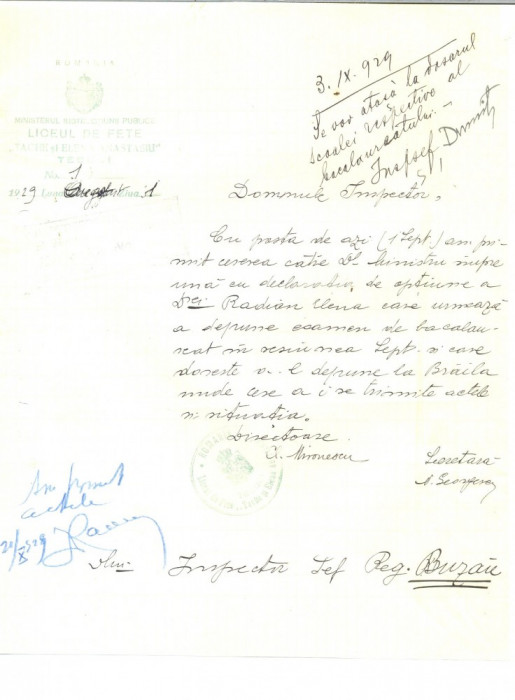 ROMÂNIA
MINISTERUL INSTRUCȚIUNII PUBLICE
LICEUL DE FETE
TECUCI
No. 1
1929
3. IX. 929
Se vor atașa la dosarul
școalei respective al
bacalaureatului. –
Inspșef
Domnule Inspector,
Cu poșta de azi (1 Sept.) am pri-
mit cererea către Dl Ministru împre
ună cu declarația de opțiune a
Drei Radian Elena care urmează
a depune examen de bacalau-
reat în sesiunea Sept. și care
dorește a-l depune la Brăila
unde cere a i se trimite actele
și situația.
Directoare
Secretară
C. Mironescu
A. Georgescu
Am primit
actele
20/X 929
Dlui Inspector Șef Reg. Buzău